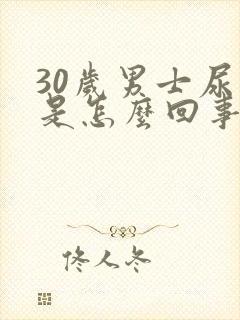 30歲男士尿
是怎麼回事
佟人冬